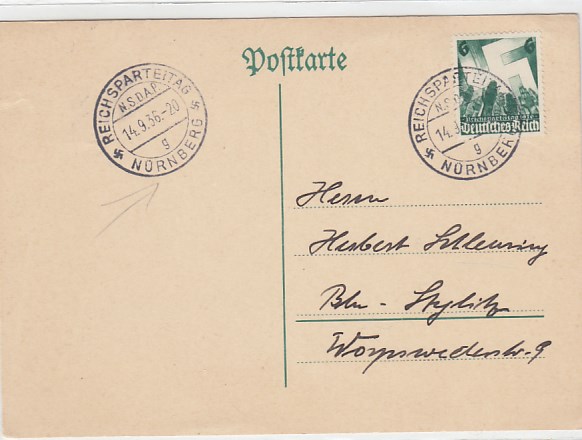 Postkarte
REICHSPARTEITAG
N.S.D.A.P.
14.9.36.-20
g
NÜRNBERG
REICHSPARTEI
N.S.D.A
14.9
g
NÜRNBERG
6 6
Reichsparteitag 1936
Deutsches Reich
Herrn
Herbert Schleusing
Bln - Steglitz
Worpswederstr. 9